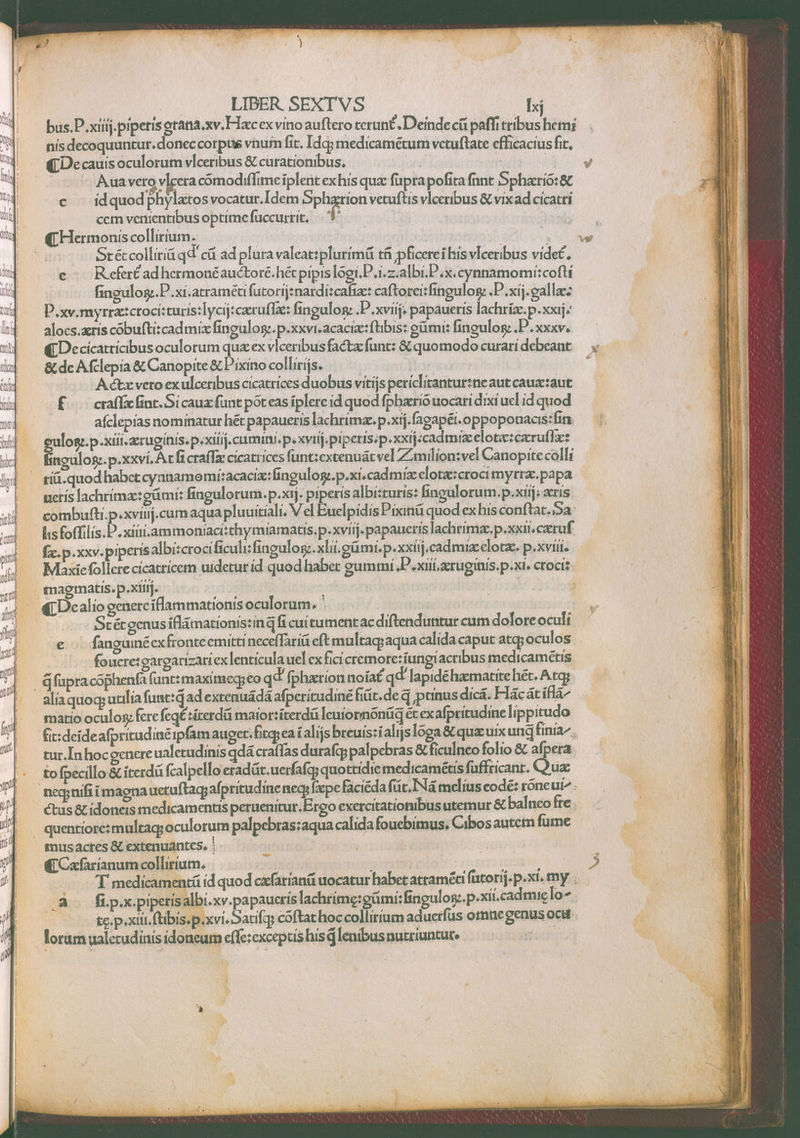 LIBER SEXTVS lxj
bus.P.xiiij.piperis grana.xv.Hæc ex vino austero terunt᷑.Deinde cū passi tribus hemi
nis decoquuntur.donec corpus vnum fit. Idq; medicamētum vetustate efficacius fit.
⁋De cauis oculorum vlceribus & curationibus.
Aua vero vlcera cōmodissime īplent ex his quæ supra posita sunt Sphærió:&
c id quod phylætos vocatur.Idem Sphærion vetustis vlceribus & vix ad cicatri
cem venientibus optime succurrit.
⁋Hermonis collirium.
St ēt colliriū qd' cū ad plura valeat:plurimū tñ ꝓficere ī his vlceribus videt᷑.
e Refert᷑ ad hermonē auctorē.hēt pipis lōgi.P.i.z.albi.P.x.cynnamomi:costi
singuloꝝ.P.xi.atramēti sutorij:nardi:casiæ: castorei:singuloꝝ.P.xij.gallæ:
P.xv.myrræ:croci:turis:lycij:cærussæ: singuloꝝ.P.xviij. papaueris lachriæ.p.xxij:
aloes.æris cōbusti:cadmiæ singuloꝝ.p.xxvi.acaciæ:stibis: gūmi: singuloꝝ.P.xxxv.
⁋De cicatricibus oculorum quæ ex vlceribus factæ sunt: & quomodo curari debeant
& de Asclepia & Canopite & Pixino collirijs.
Actæ vero ex ulceribus cicatrices duobus vitijs periclitantur:ne aut cauæ:aut
f crassæ sint.Si cauæ sunt pōt eas īplere id quod sphærió uocari dixi uel id quod
asclepias nominatur hēt papaueris lachrimæ.p.xij.sagapēi.oppoponacis:sin
guloꝝ.p.xiii.æruginis.p.xiiij.cumini.p.xviij.piperis.p.xxij:cadmiæ elotæ:cærussæ:
singuloꝝ.p.xxvi.At si crassæ cicatrices sunt:extenuāt vel Zmilion:vel Canopite colli
riū.quod habet cynnamomi:acaciæ:singuloꝝ.p.xi.cadmiæ elotæ:croci myrræ.papa
ueris lachrimæ:gūmi: singulorum.p.xij. piperis albi:turis: singulorum.p.xiij: æris
combusti.p.xviiij.cum aqua pluuitiali. Vel Euelpidis Pixinū quod ex his constat.Sa
lis fossilis.P.xiiii.ammoniaci:thymiamatis.p.xviij.papaueris lachrimæ.p.xxii.cæruf
sæ.p.xxv.piperis albi:croci siculi:singuloꝝ.xlii.gūmi.p.xxiij.cadmiæ elotæ. p.xviii.
Maxie sollere cicatricem uidetur id quod habet gummi.P.xiii.æruginis.p.xi. croci:
magmatis.p.xiiij.
⁋De alio genere īflammationis oculorum.
St ēt genus īflāmationis:in q̄ si cui tument ac distenduntur cum dolore oculi
e sanguinē ex fronte emitti necessariū est multaq; aqua calida caput atq; oculos
fouere:gargarizari ex lenticula uel ex fici cremore:iungi acribus medicamētis
q̄ supra cōphensa sunt:maximeq; eo qd' sphærion noīat᷑ qd' lapidē hæmatite hēt. Atq;
alia quoq; utilia sunt:q̄ ad extenuādā asperitudinē fiūt.de q̄ ꝓtinus dicā. Hāc āt īflā-
matio oculoꝝ fere seqt᷑:īterdū maior:īterdū leuior nōnūq̄ ēt ex aspritudine lippitudo
fit:deīde aspritudinē ipsam auget.fitq; ea ī alijs breuis:ī alijs lōga & quæ uix unq̄ finia-
tur.In hoc genere ualetudinis qdā crassas durasq; palpebras & ficulneo folio & aspera
to specillo & īterdū scalpello eradūt.uersasq; quottidie medicamētis suffricant. Quæ
neq; nisi ī magna uetustaq; aspritudine neq; sæpe faciēda sūt.Nā melius eodē: rōne ui-
ctus & idoneis medicamentis peruenitur.Ergo exercitationibus utemur & balneo fre
quentiore:multaq; oculorum palpebras:aqua calida fouebimus. Cibos autem sume
mus acres & extenuantes.
⁋Cæsarianum collirium.
T medicamentū id quod cæsarianū uocatur habet atramēti sutorij.p.xi. my
a si.p.x.piperis albi.xv.papaueris lachrimę:gūmi:singuloꝝ.p.xii.cadmię lo-
tę.p.xiii.stibis.p.xvi.Satisq; cōstat hoc collirium aduersus omne genus ocu
lorum ualetudinis idoneum esse:exceptis his q̄ lenibus nutriuntur.